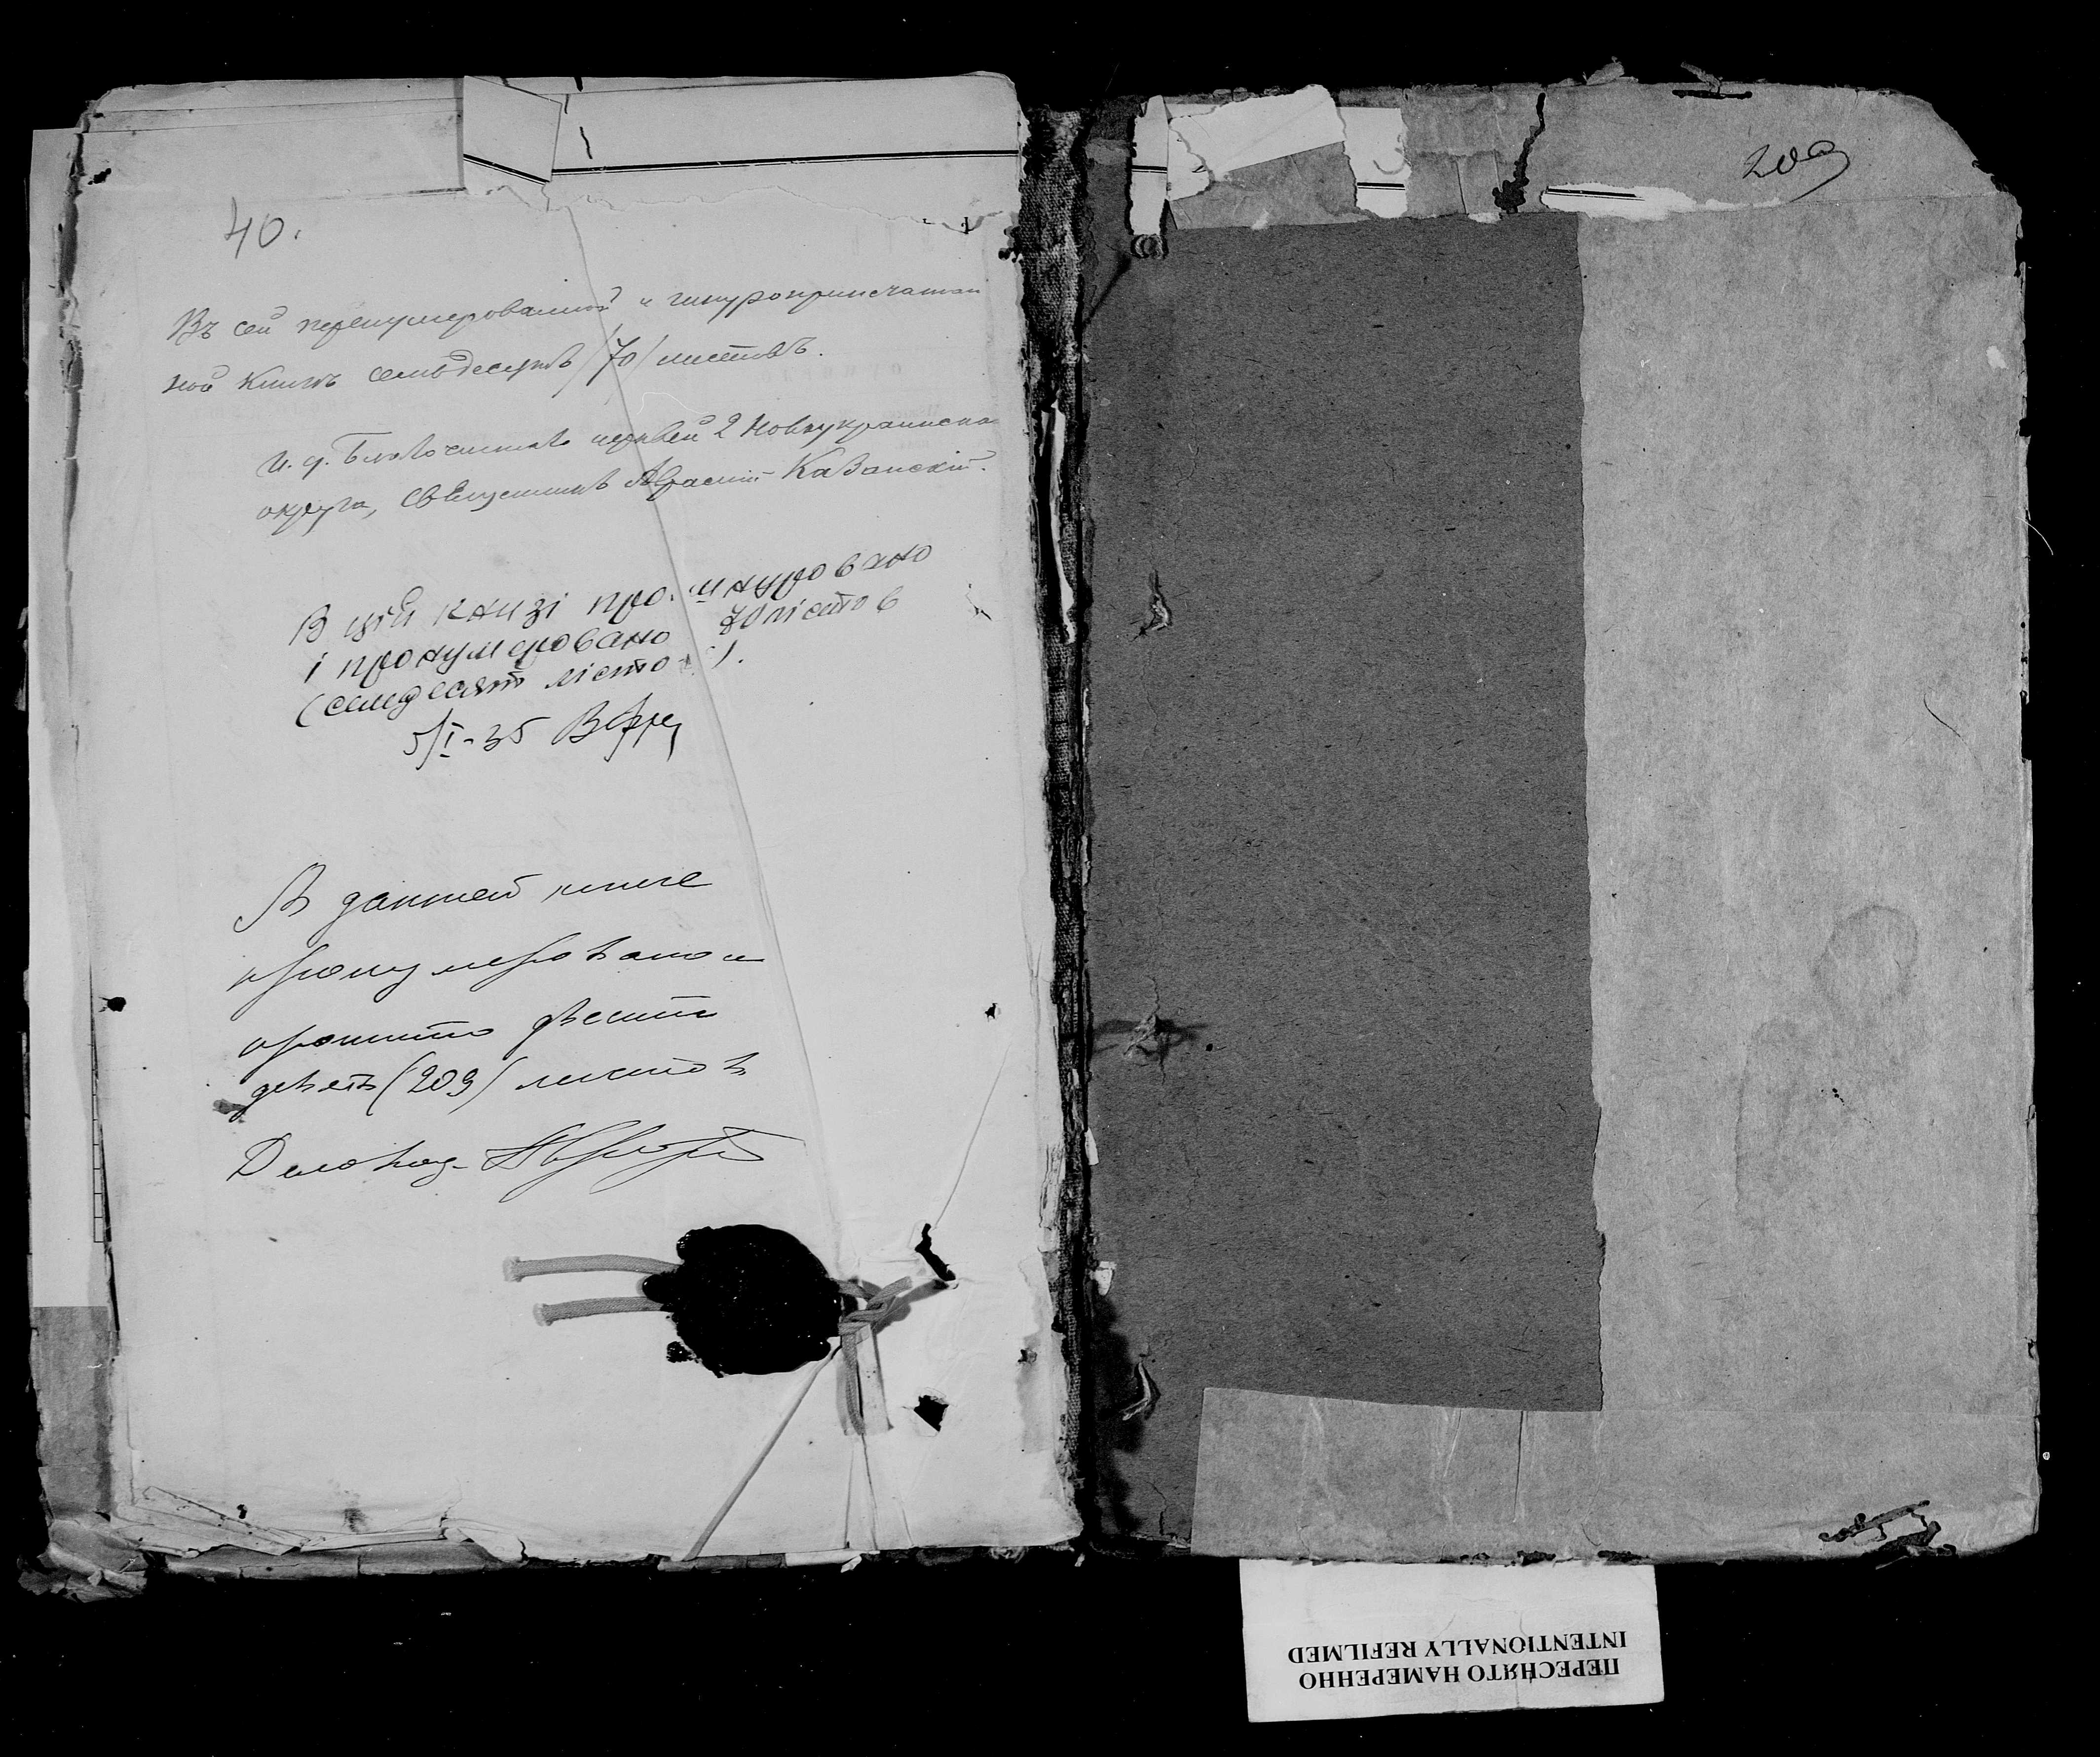 40.
209
Въ сей перенумерованной и шнуропричатан
ной книгѣ семьдесятъ /70/ листовъ.
И. д. Благочиннаго церквей 2 Новоукраинска
округа, Священникъ Казанскій.
В цій книзі прошнуровано
і пронумеровано 70 лістов
(семдесят лісто ).
5/I-35
В данной книге
пронумеровано и
прошито двести
девять (209) листов
Деловод-
ПЕРЕСНЯТО НАМЕРЕННО
INTENTIONALLY REFILMED